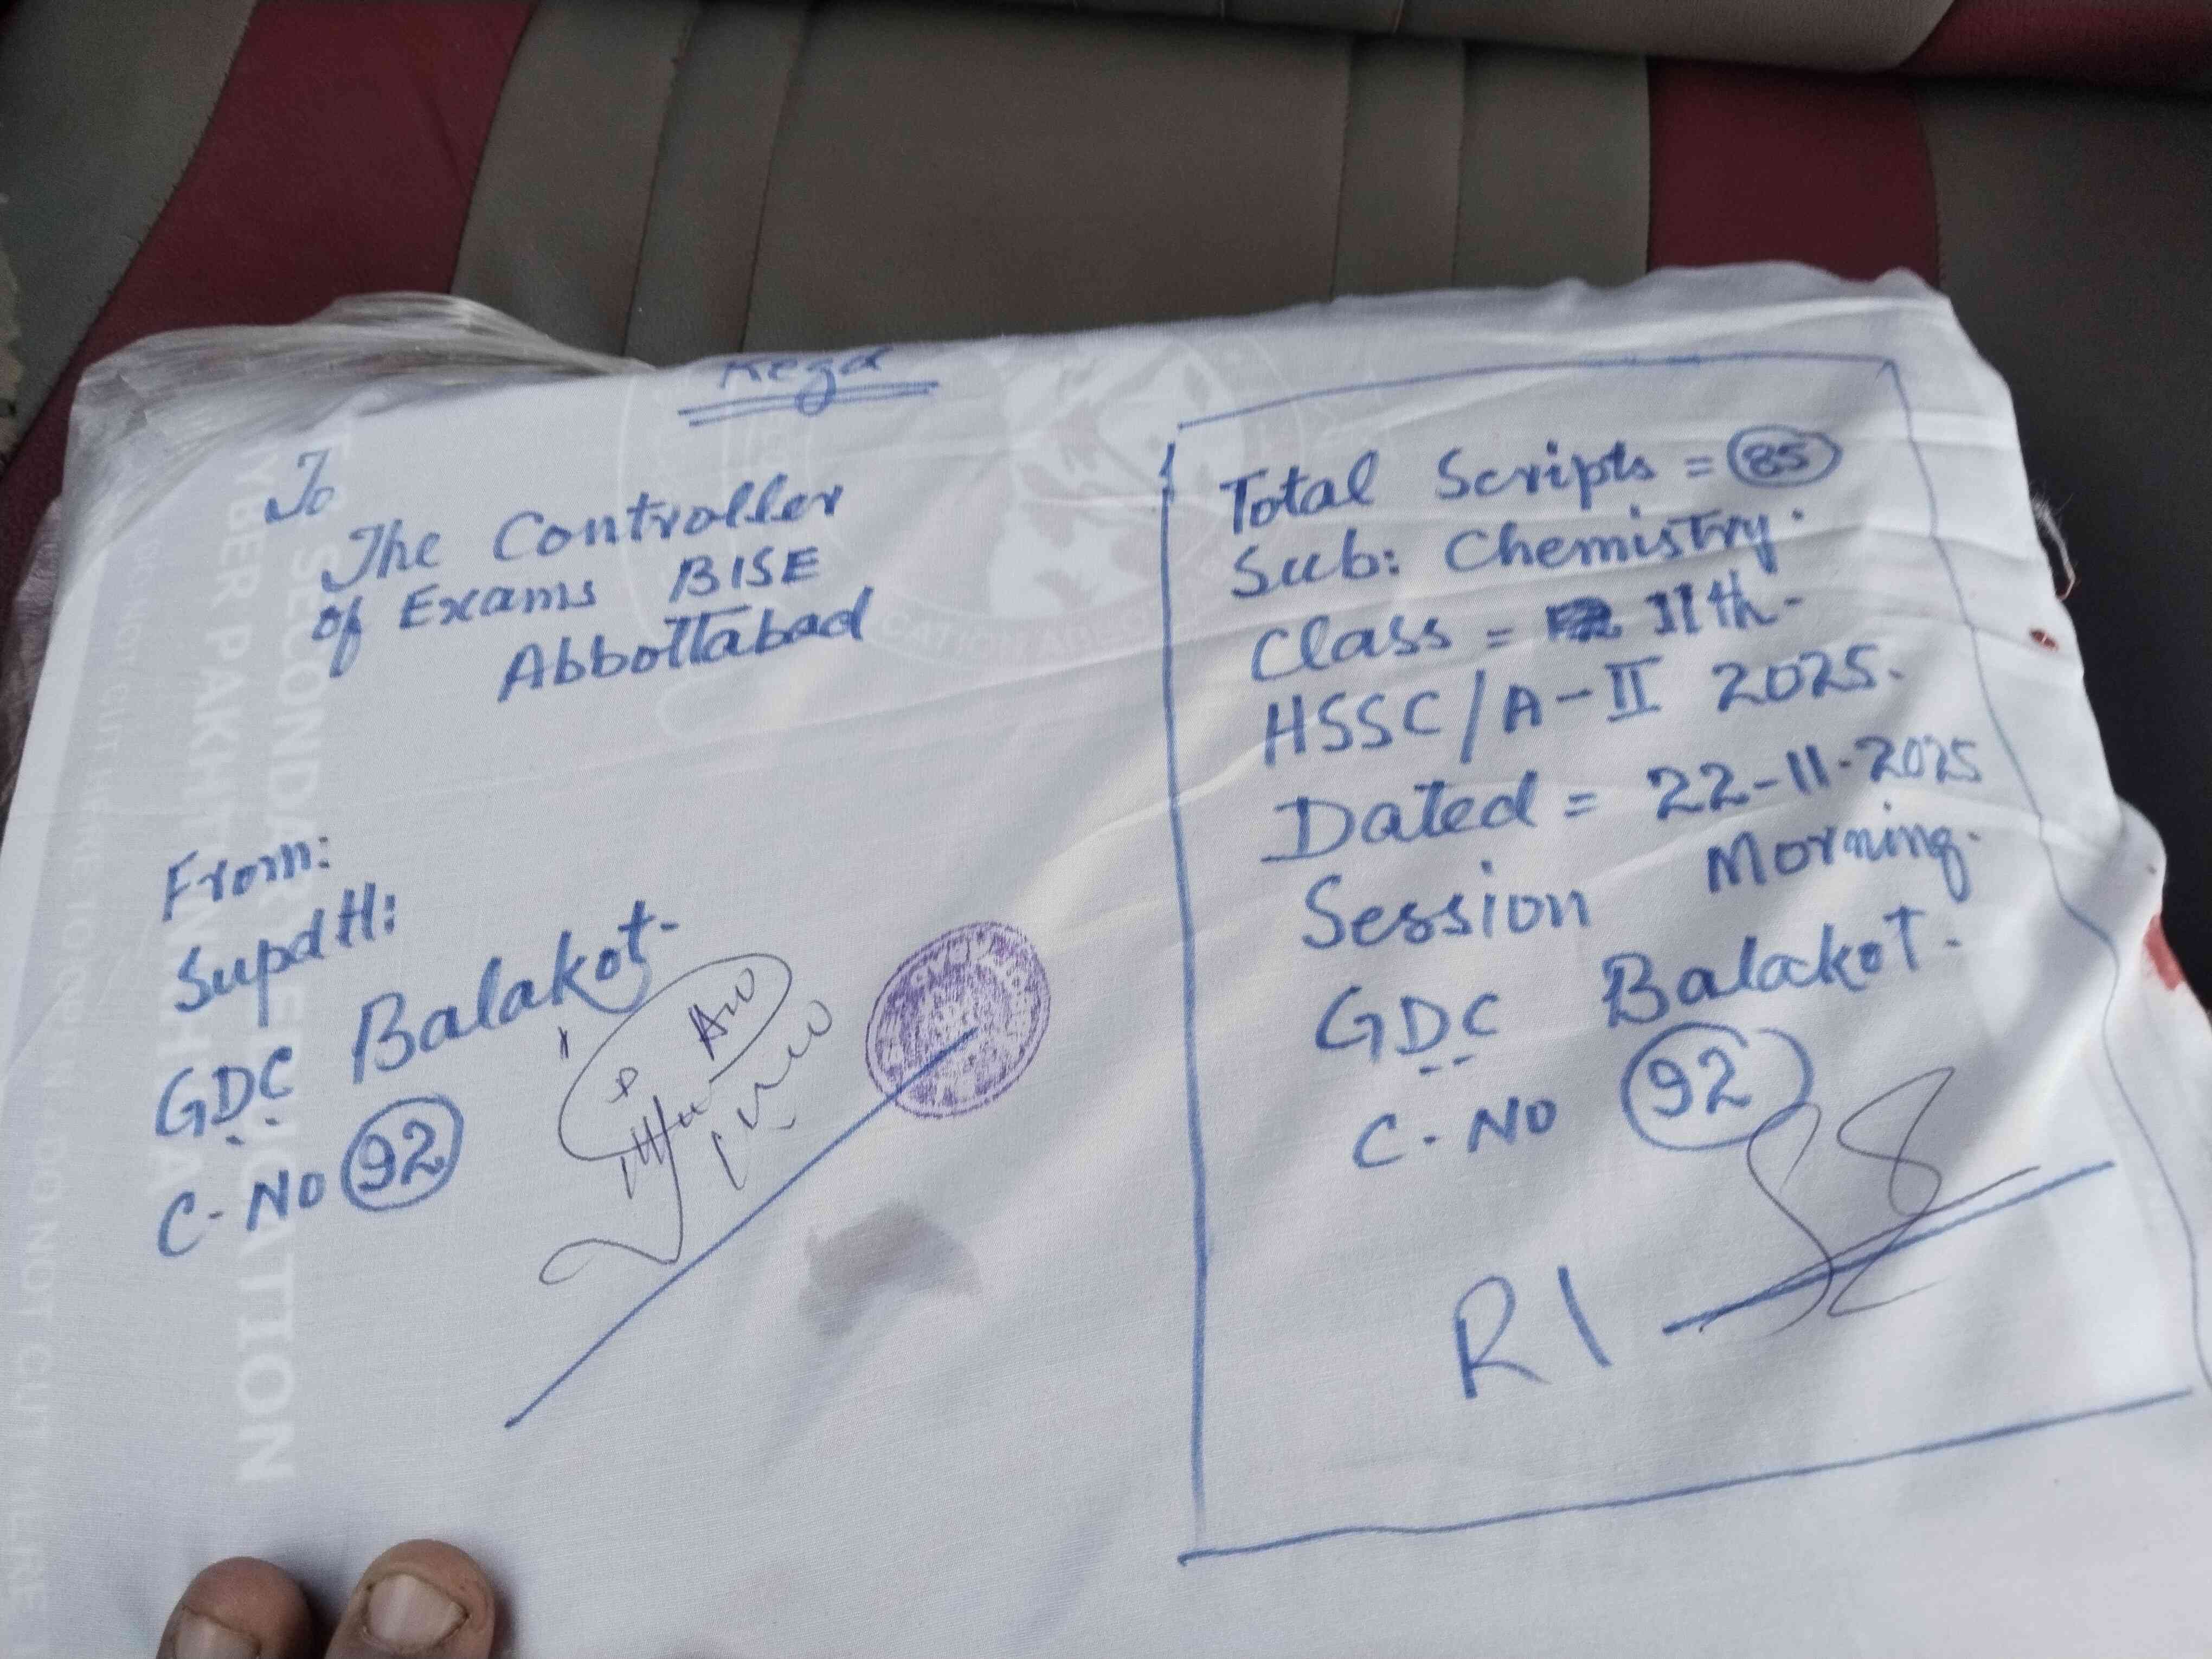 Regd
To
The Controller
of Exams BISE
Abbottabad
From:
Supdtt:
GDC Balakot.
C-No 92
Total Scripts = 85
Sub: Chemistry.
Class = 11th.
HSSC/A-II 2025.
Dated = 22-11-2025
Session Morning.
GDC Balakot.
C-No 92
R1
SECONDARY EDUCATION
YBER PAKHTUNKHWA
DO NOT CUT HERE